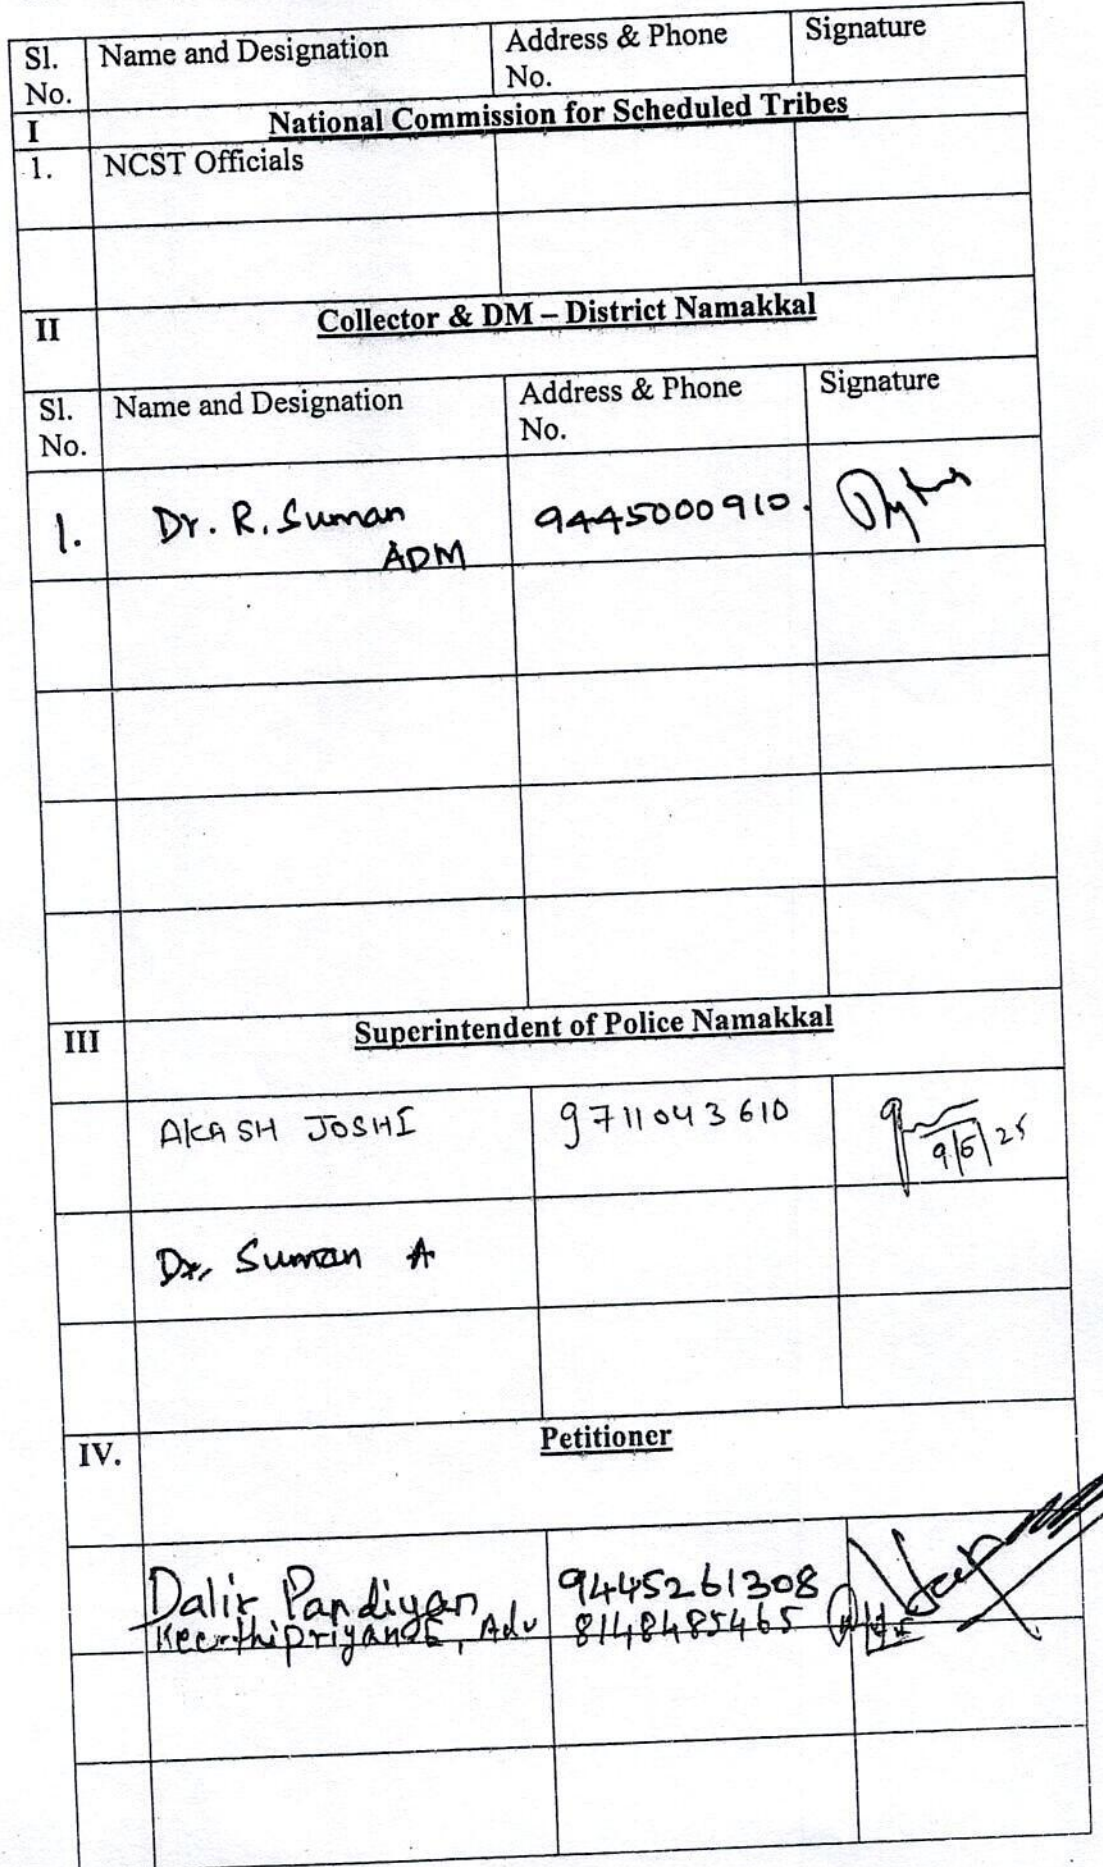 Sl. No. Name and Designation Address & Phone No. Signature
I National Commission for Scheduled Tribes
1. NCST Officials
II Collector & DM – District Namakkal
Sl. No. Name and Designation Address & Phone No. Signature
1. Dr. R. Suman 9445000910.
ADM
III Superintendent of Police Namakkal
AKASH JOSHI 9711043610
9/5/25
Dr. Suman A
IV. Petitioner
Pandiyan 9445261308
Adv 8148485465